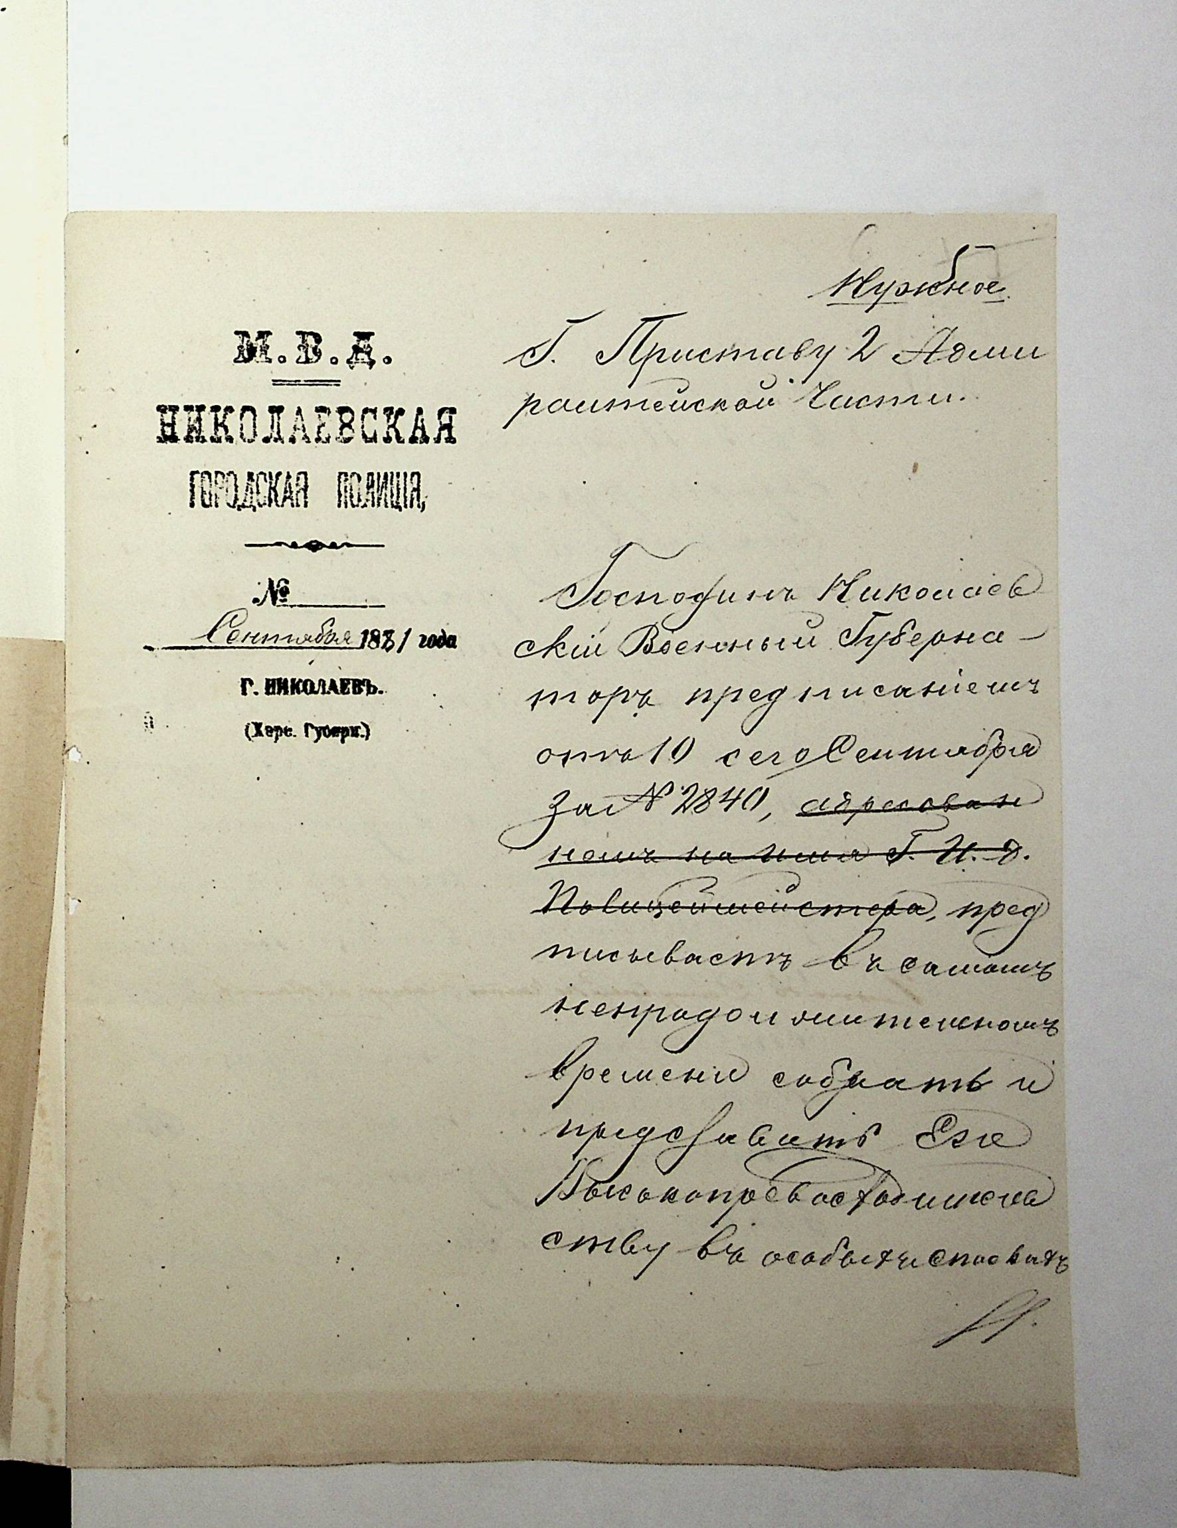 Нужное
М.В.Д.
НИКОЛАЕВСКАЯ
ГОРОДСКАЯ ПОЛИЦІЯ,
№
Сентября 1881 года
Г. НИКОЛАЕВЪ.
(Херс. Губерн.)
Г. Приставу 2 Адми
ралтейской Части.
Господинъ Николаев
скій Военный Губерна-
торъ предписаніемъ
отъ 10 сего Сентября
за № 2840, адресован
номъ на имя Г. И. Д.
Полицеймейстера, пред
писываетъ въ самомъ
непродолжительномъ
времени собрать и
представить Его
Высокопревосходитель
ству въ особыхъ спискахъ